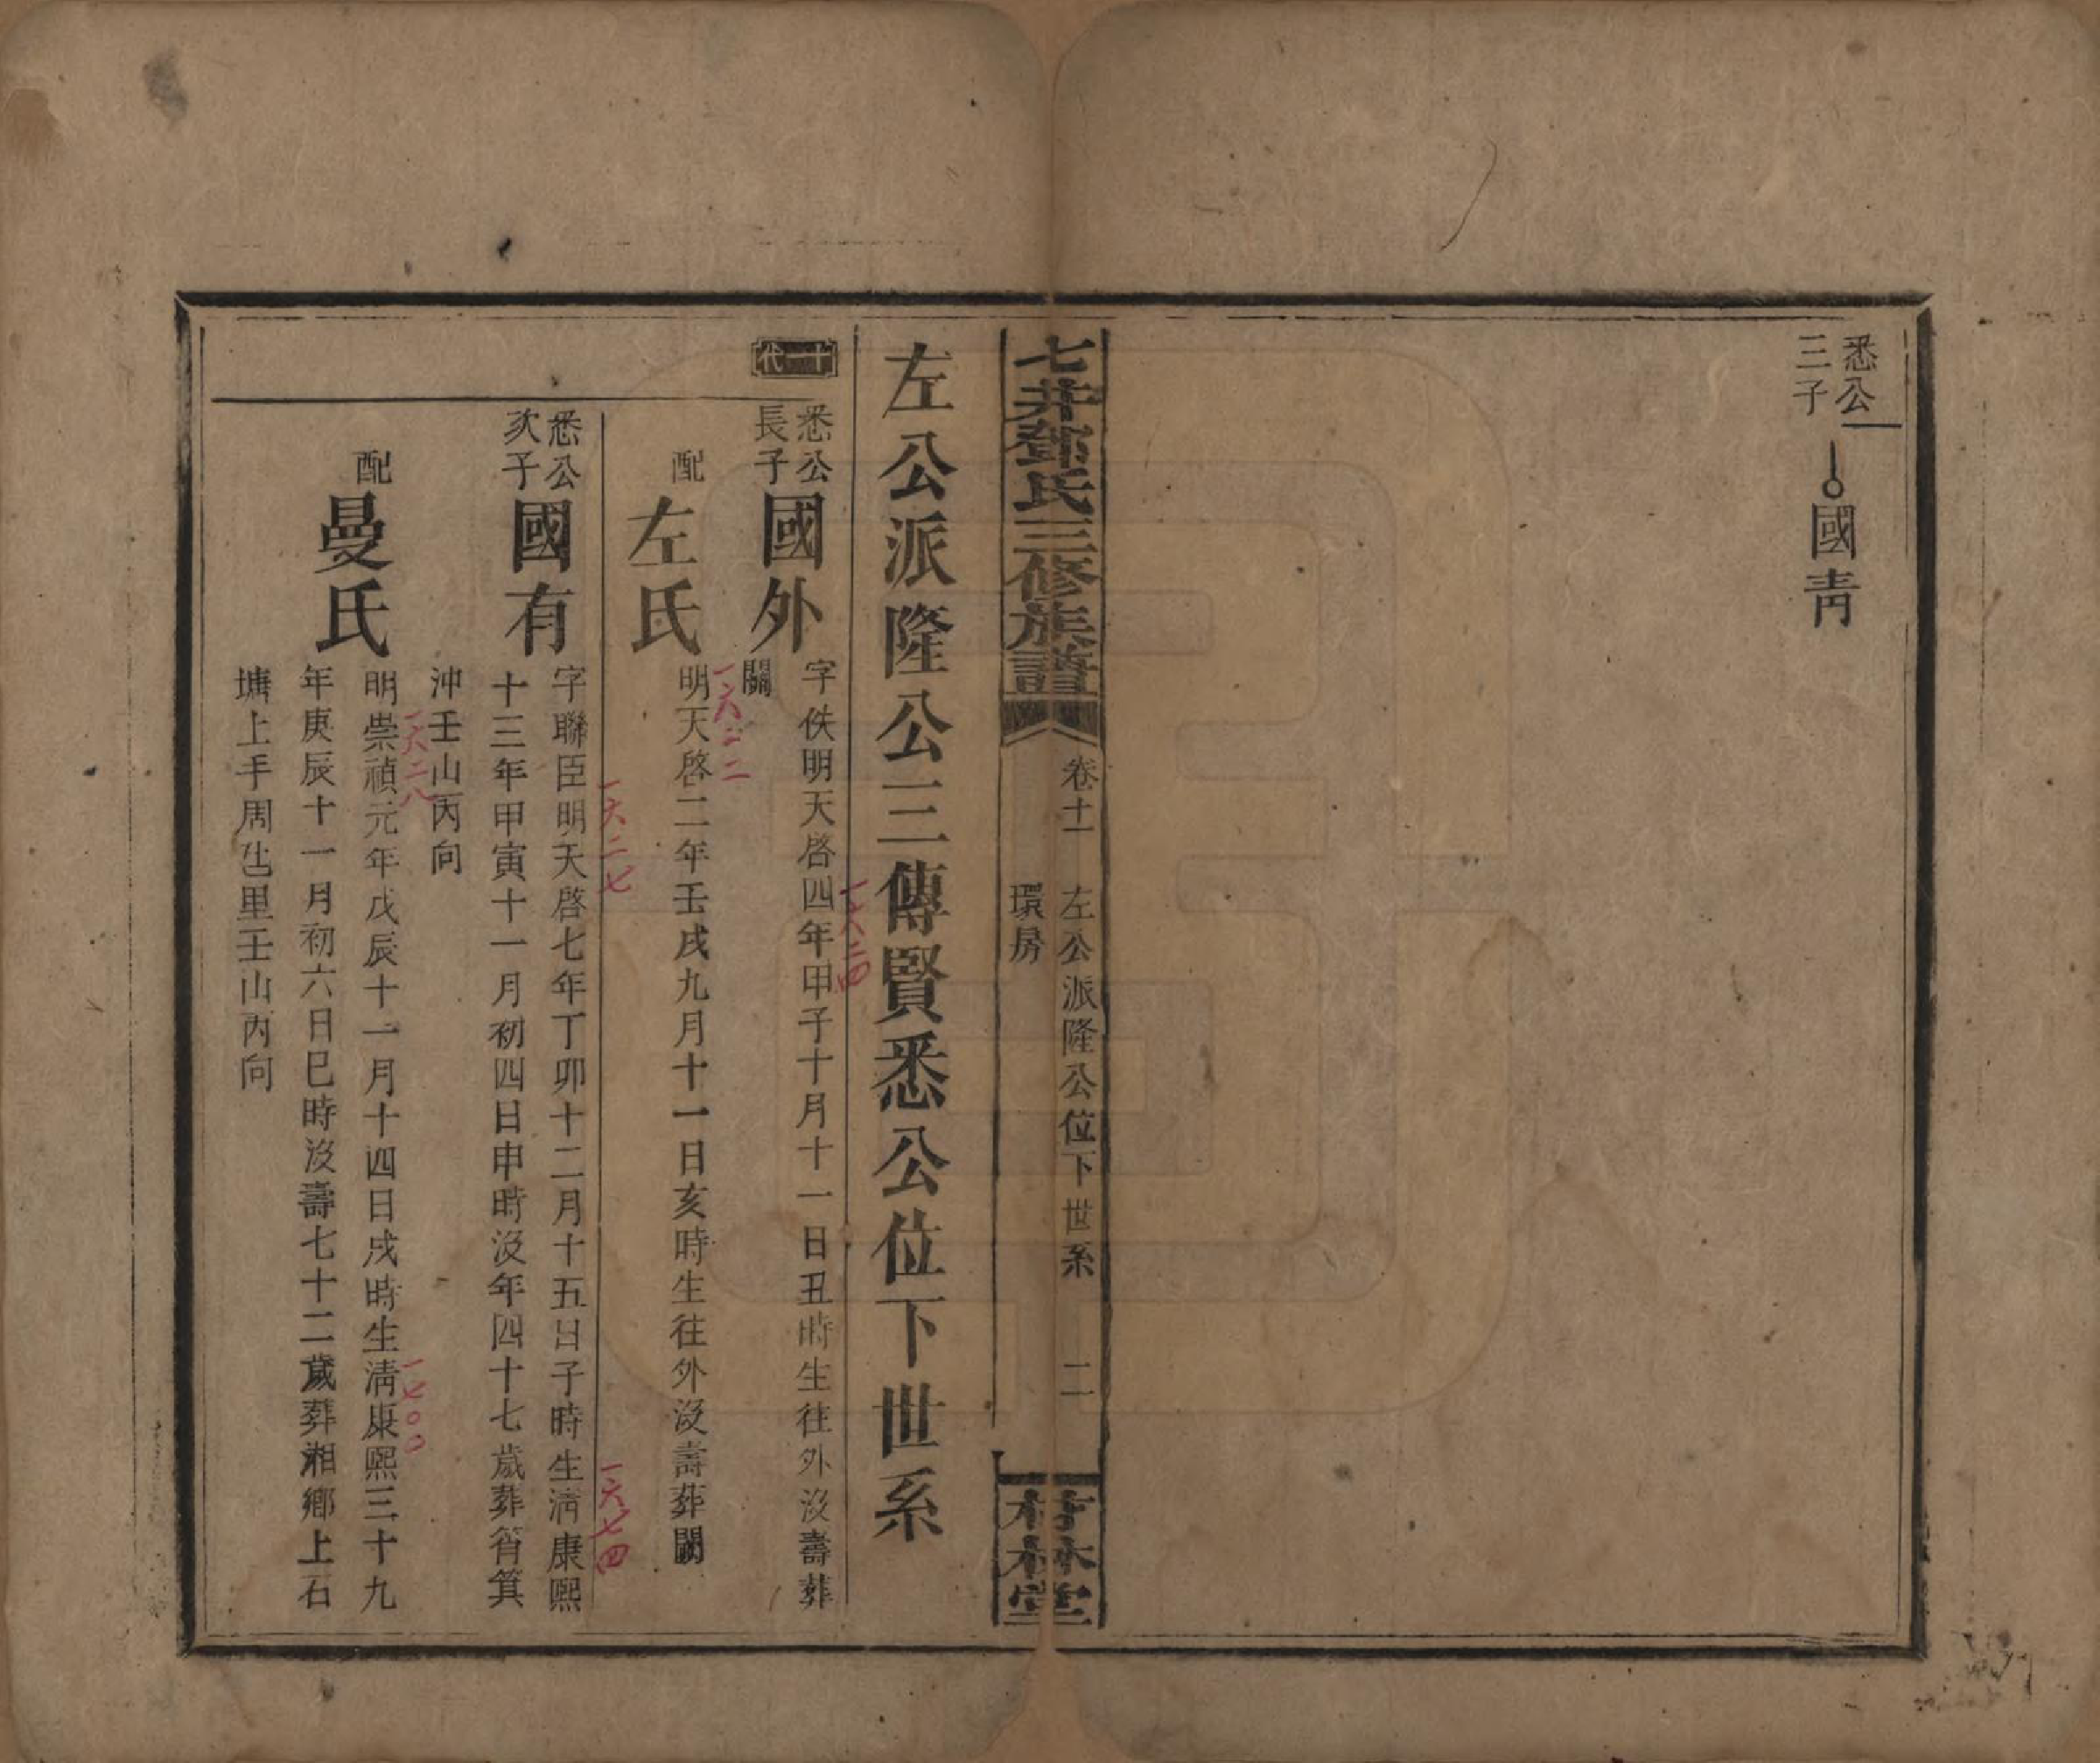 悉公
三子
國青
七井鄧氏三修族譜
卷十一 左公派隆公位下世系 二
環房
杏林堂
左公派隆公三傳賢悉公位下世系
十一代
悉公
長子
國外
字佚明天啓四年甲子十月十一日丑時生往外沒壽葬
闕
一六二四
配
左氏
明天啓二年壬戌九月十一日亥時生往外沒壽葬闕
一六二二
悉公
次子
國有
字聯臣明天啓七年丁卯十二月十五日子時生清康熙
十三年甲寅十一月初四日申時沒年四十七歲葬筲箕
沖壬山丙向
一六二七
一六七四
配
曼氏
明崇禎元年戊辰十一月十四日戌時生清康熙三十九
年庚辰十一月初六日巳時沒壽七十二歲葬湘鄉上石
塘上手周岜里壬山丙向
一六二八
一七〇〇